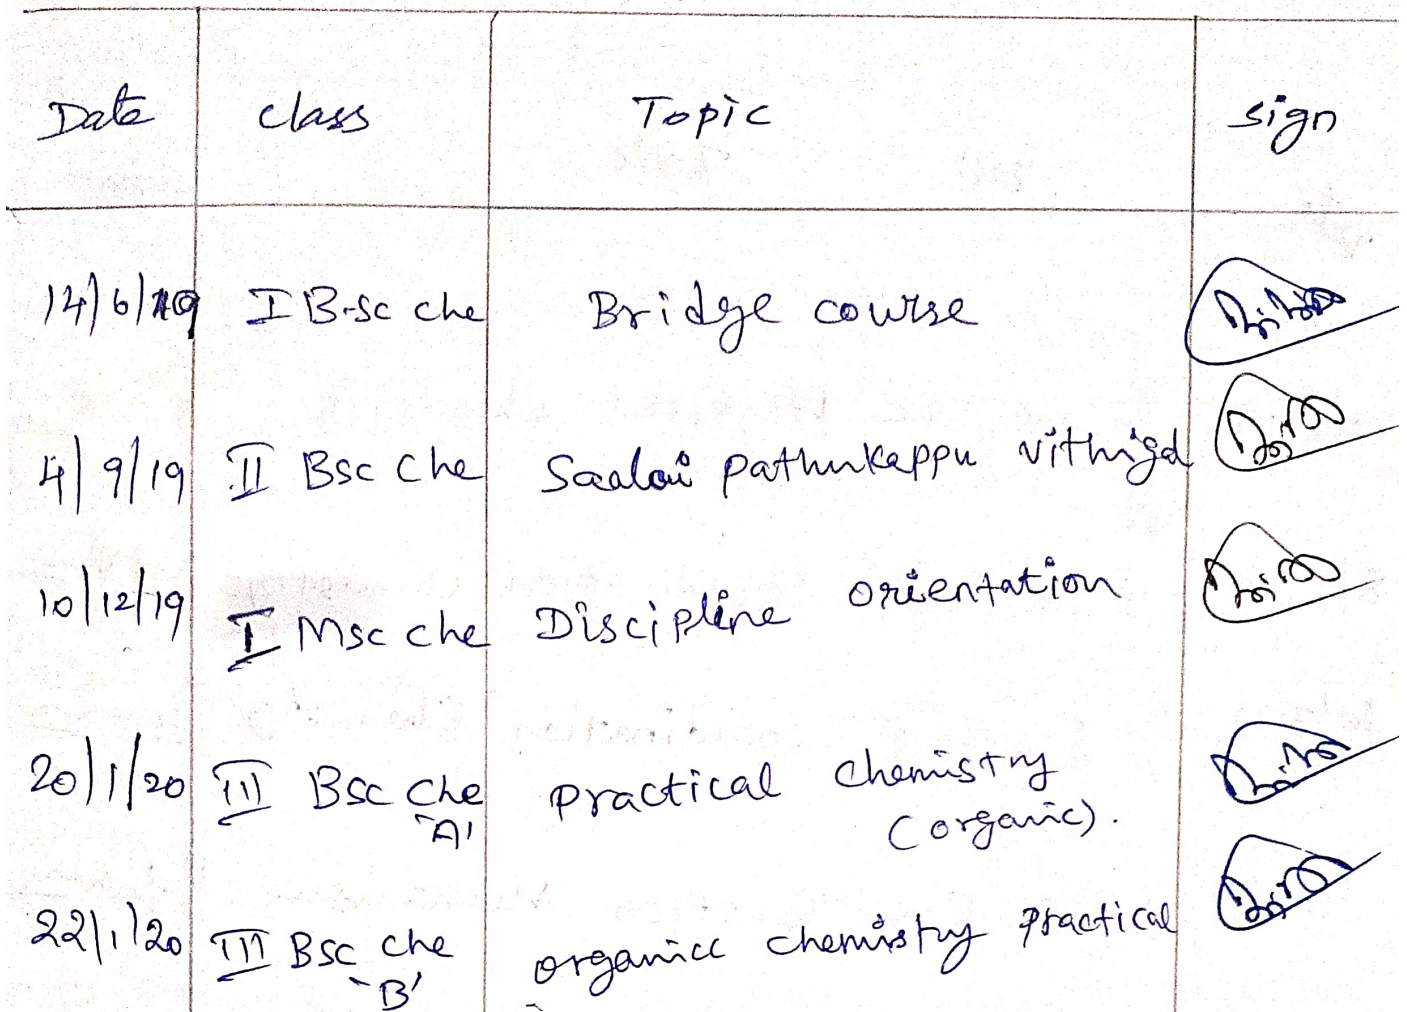 Date class Topic sign
14/6/19 I B.sc che Bridge course
4/9/19 II Bsc che Saalai pathukappu vithigal
10/12/19 I Msc che Discipline orientation
20/1/20 III Bsc che practical chemistry
'A' (organic).
22/1/20 III Bsc che organicc chemistry practical
'B'